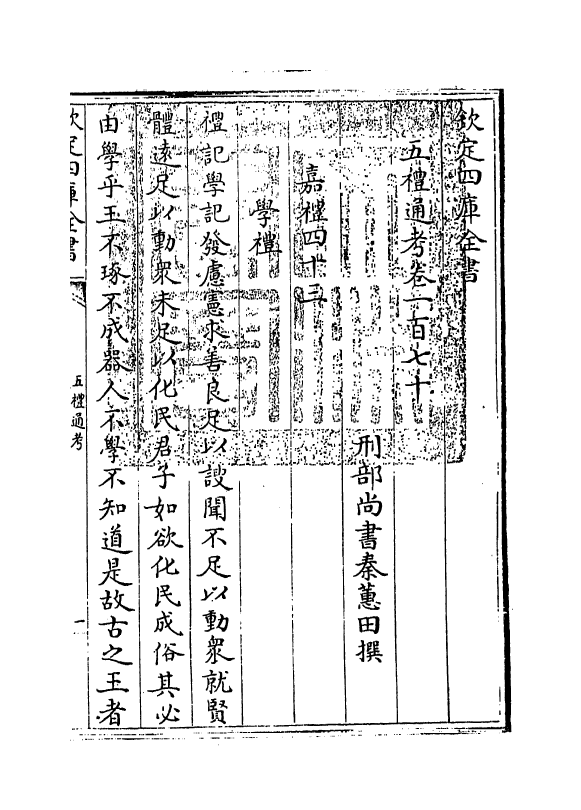 欽定四庫全書
五禮通考卷一百七十
刑部尚書秦蕙田撰
嘉禮四十三
學禮
禮記學記發慮憲求善良足以謏聞不足以動衆就賢
體遠足以動衆未足以化民君子如欲化民成俗其必
由學乎玉不琢不成器人不學不知道是故古之王者
欽定四庫全書
五禮通考
一